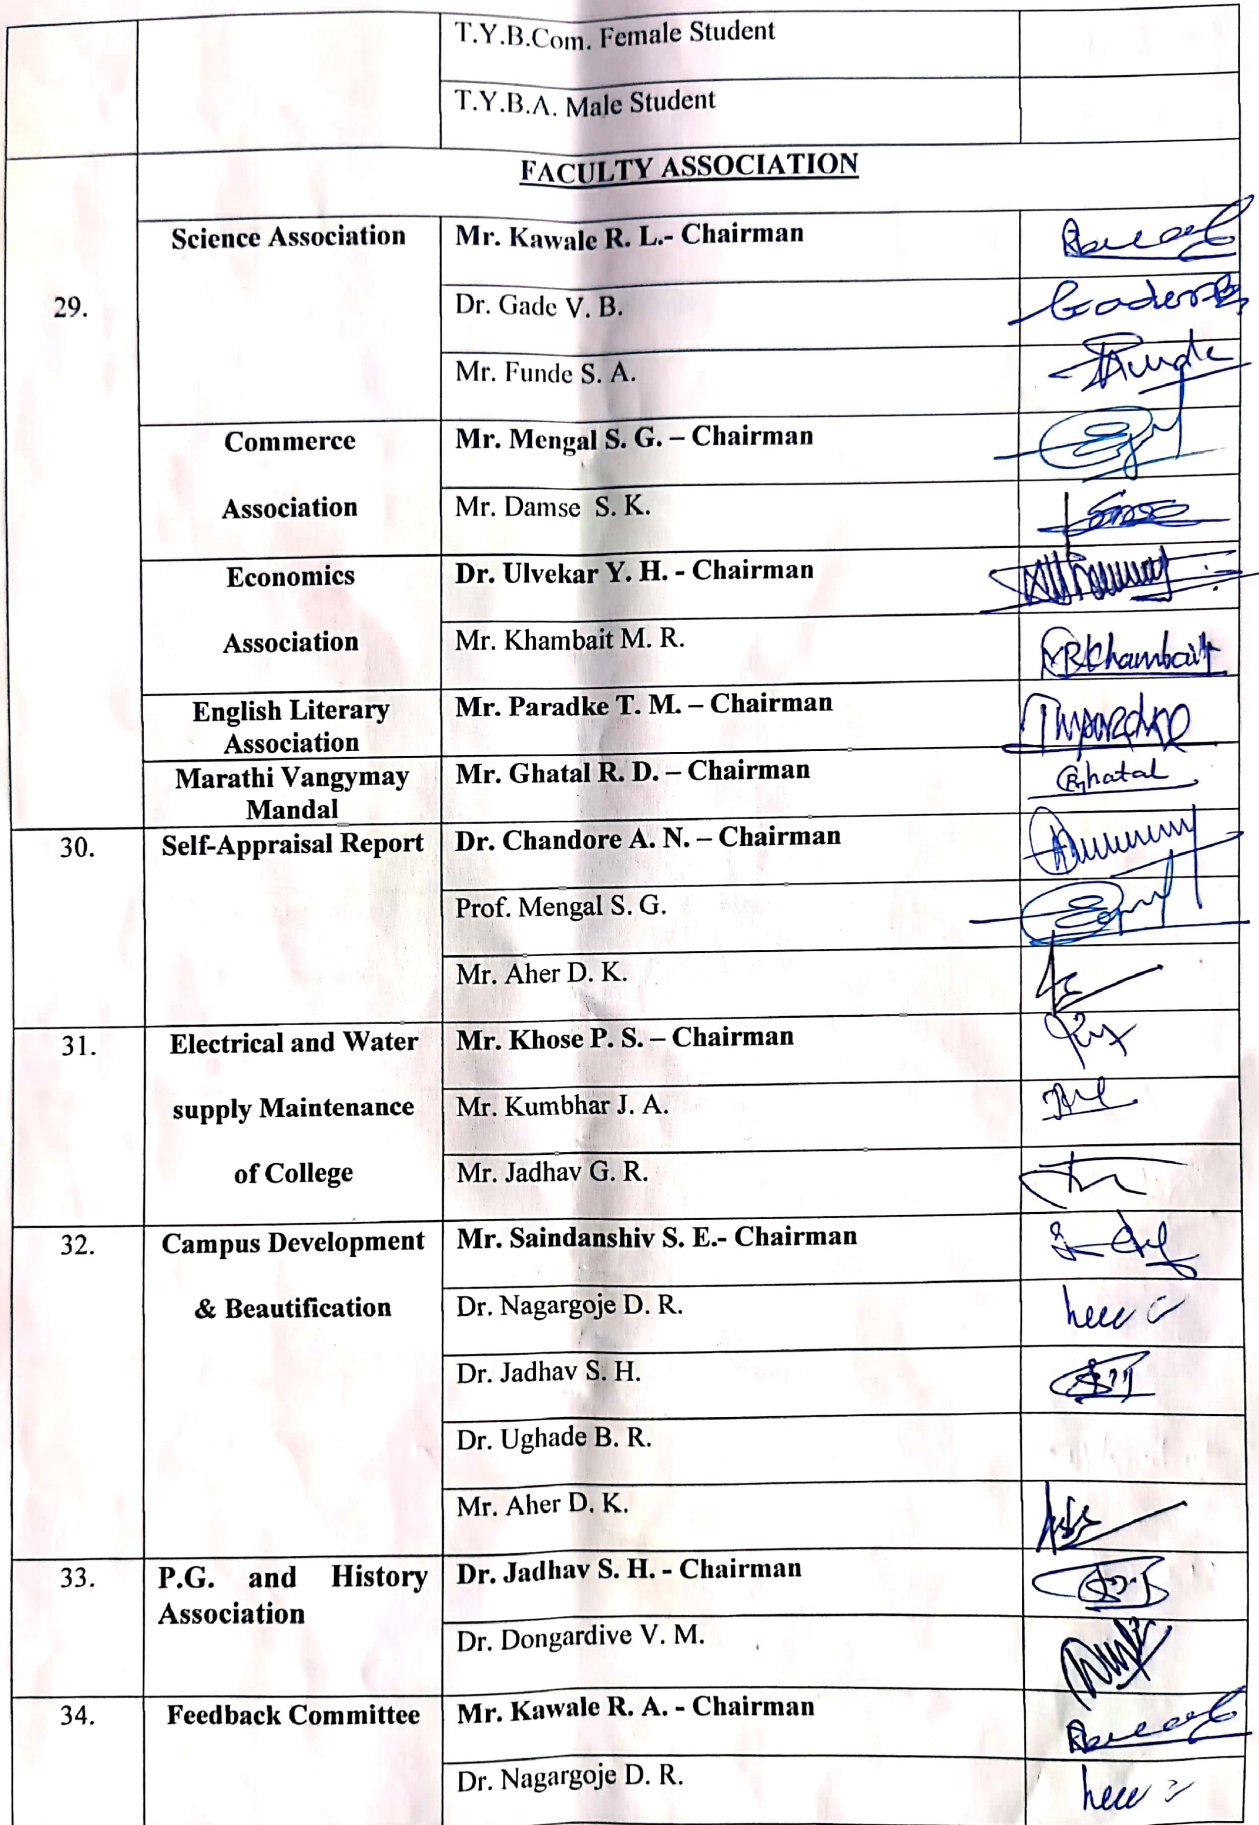 T.Y.B.Com. Female Student
T.Y.B.A. Male Student
FACULTY ASSOCIATION
29.
Science Association
Mr. Kawale R. L.- Chairman
Dr. Gade V. B.
Mr. Funde S. A.
Commerce
Association
Mr. Mengal S. G. – Chairman
Mr. Damse S. K.
Economics
Association
Dr. Ulvekar Y. H. - Chairman
Mr. Khambait M. R.
MRKhambait
English Literary
Association
Mr. Paradke T. M. – Chairman
Marathi Vangymay
Mandal
Mr. Ghatal R. D. – Chairman
Ghatal
30.
Self-Appraisal Report
Dr. Chandore A. N. – Chairman
Prof. Mengal S. G.
Mr. Aher D. K.
31.
Electrical and Water
supply Maintenance
of College
Mr. Khose P. S. – Chairman
Mr. Kumbhar J. A.
Mr. Jadhav G. R.
32.
Campus Development
& Beautification
Mr. Saindanshiv S. E.- Chairman
Dr. Nagargoje D. R.
Dr. Jadhav S. H.
Dr. Ughade B. R.
Mr. Aher D. K.
33.
P.G. and History
Association
Dr. Jadhav S. H. - Chairman
Dr. Dongardive V. M.
34.
Feedback Committee
Mr. Kawale R. A. - Chairman
Dr. Nagargoje D. R.